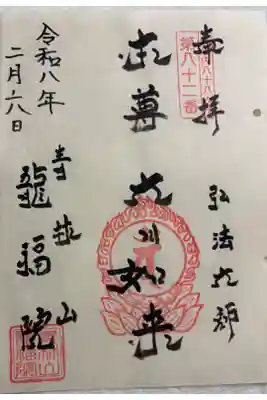 奉拝
第八十二番
弘法大師
本尊 大日如来
青林山
龍福院
令和八年
二月六日